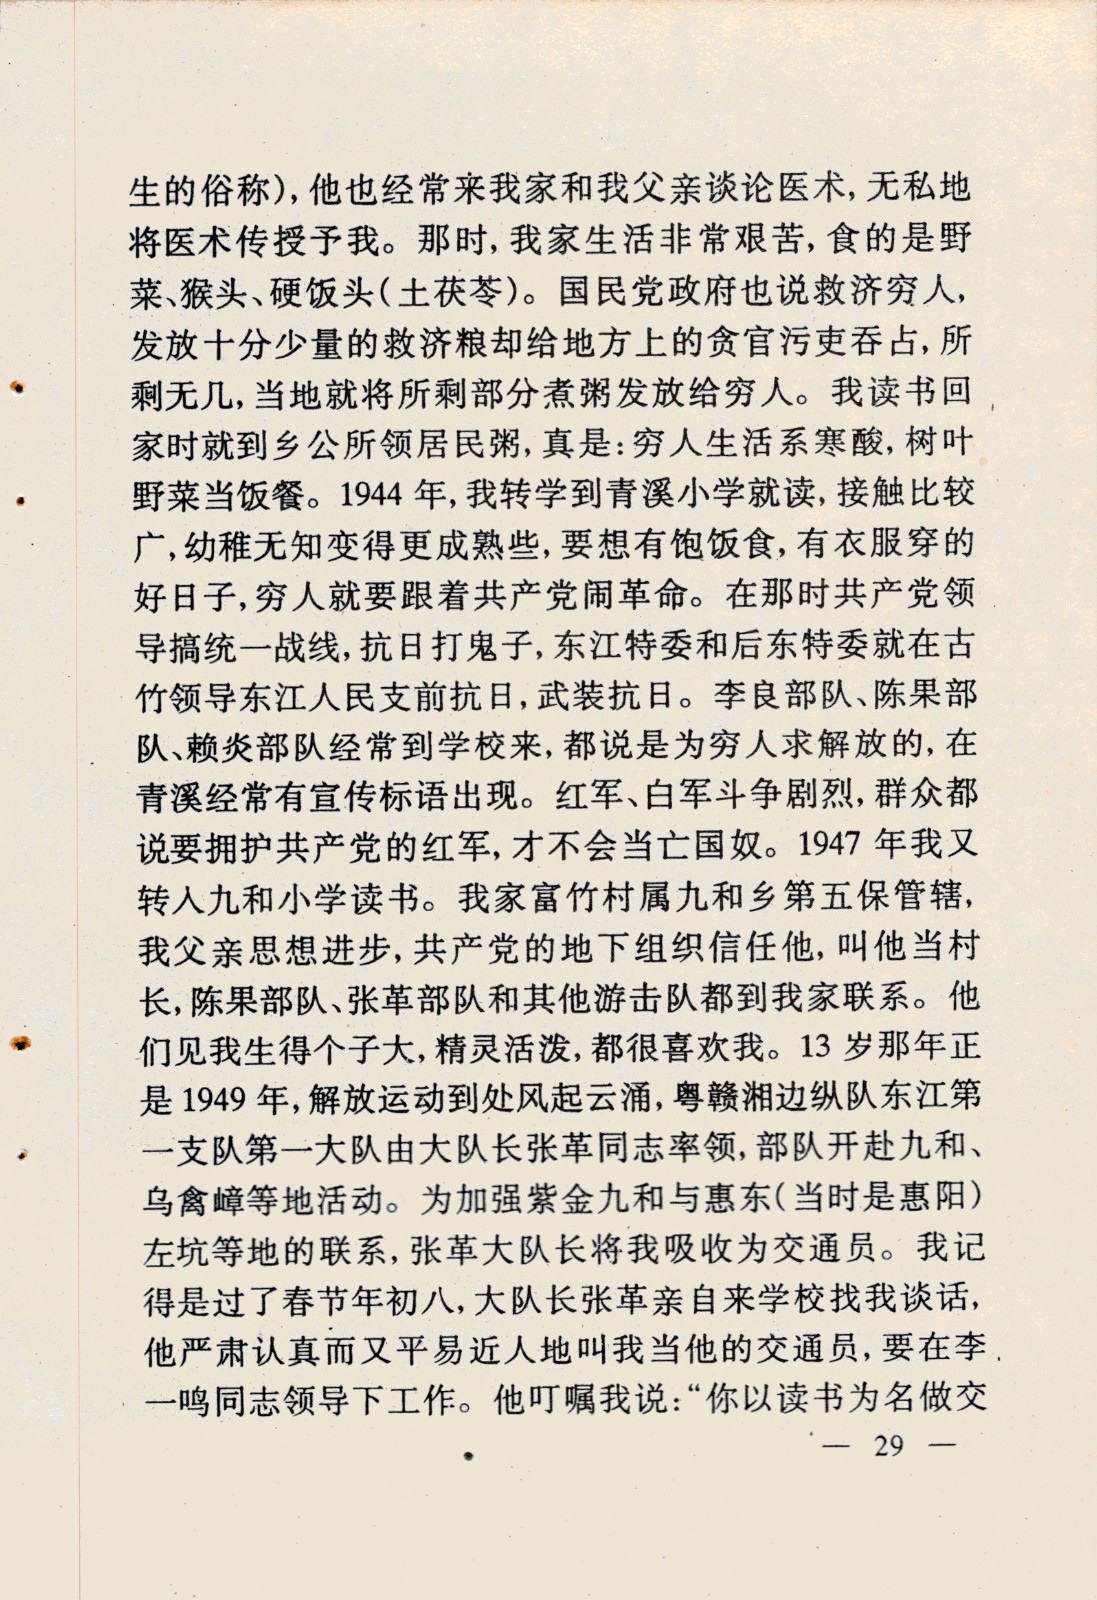 生的俗称),他也经常来我家和我父亲谈论医术,无私地
将医术传授予我。那时,我家生活非常艰苦,食的是野
菜、猴头、硬饭头(土茯苓)。国民党政府也说救济穷人,
发放十分少量的救济粮却给地方上的贪官污吏吞占,所
剩无几,当地就将所剩部分煮粥发放给穷人。我读书回
家时就到乡公所领居民粥,真是:穷人生活系寒酸,树叶
野菜当饭餐。1944 年,我转学到青溪小学就读,接触比较
广,幼稚无知变得更成熟些,要想有饱饭食,有衣服穿的
好日子,穷人就要跟着共产党闹革命。在那时共产党领
导搞统一战线,抗日打鬼子,东江特委和后东特委就在古
竹领导东江人民支前抗日,武装抗日。李良部队、陈果部
队、赖炎部队经常到学校来,都说是为穷人求解放的,在
青溪经常有宣传标语出现。红军、白军斗争剧烈,群众都
说要拥护共产党的红军,才不会当亡国奴。1947 年我又
转入九和小学读书。我家富竹村属九和乡第五保管辖,
我父亲思想进步,共产党的地下组织信任他,叫他当村
长,陈果部队、张革部队和其他游击队都到我家联系。他
们见我生得个子大,精灵活泼,都很喜欢我。13 岁那年正
是 1949 年,解放运动到处风起云涌,粤赣湘边纵队东江第
一支队第一大队由大队长张革同志率领,部队开赴九和、
乌禽嶂等地活动。为加强紫金九和与惠东(当时是惠阳)
左坑等地的联系,张革大队长将我吸收为交通员。我记
得是过了春节年初八,大队长张革亲自来学校找我谈话,
他严肃认真而又平易近人地叫我当他的交通员,要在李
一鸣同志领导下工作。他叮嘱我说:“你以读书为名做交
— 29 —